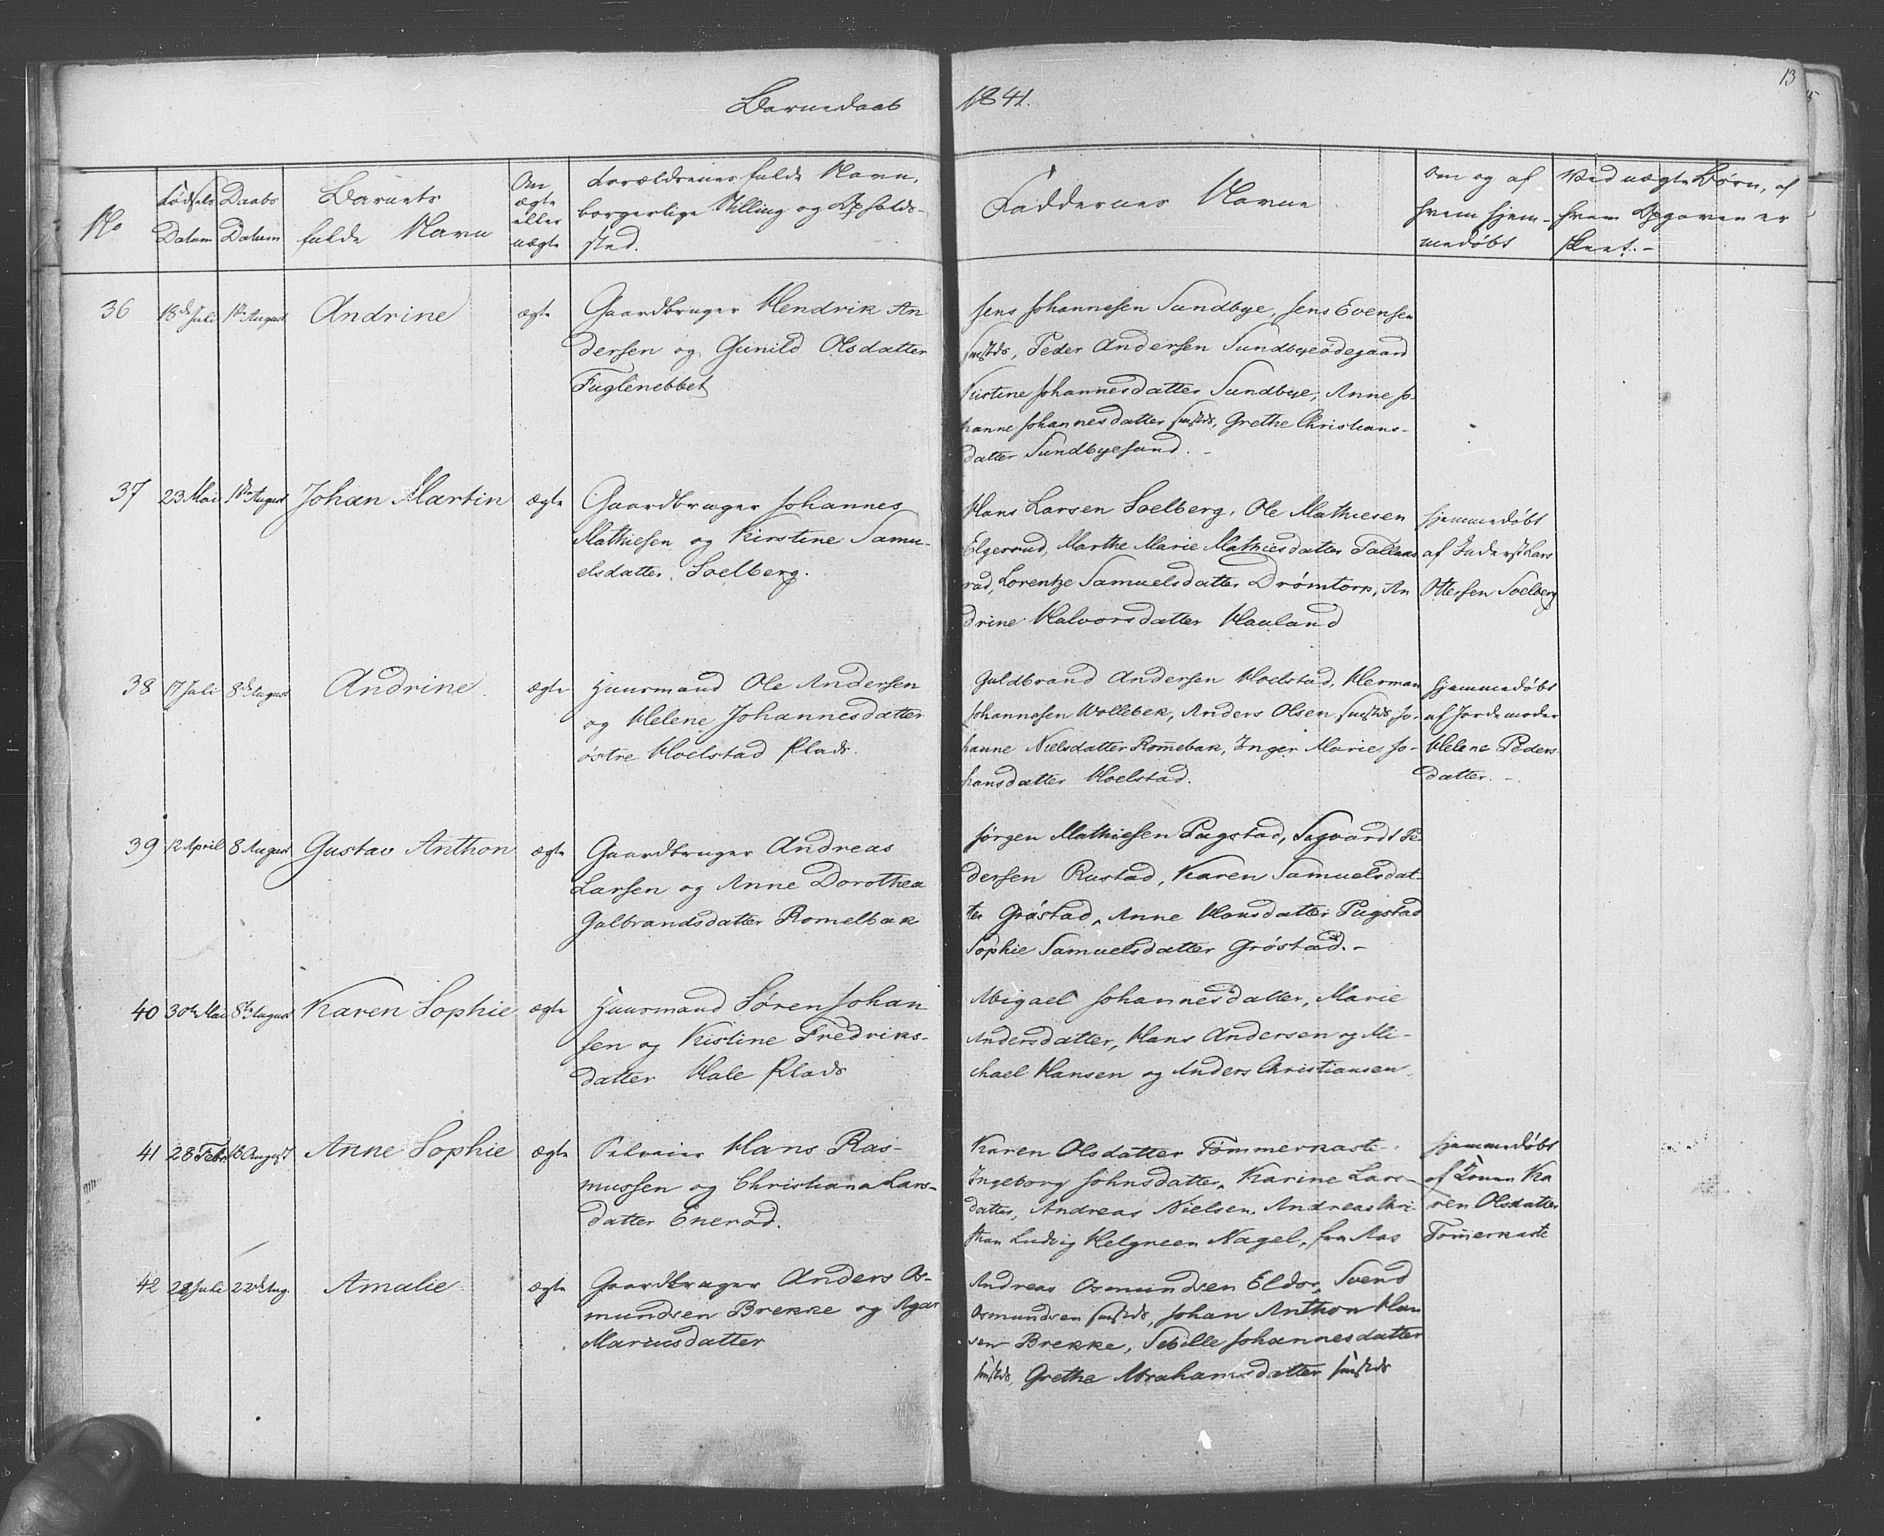 Barnedaab 1841.
13
No
Fødsels Datum
Daabs Datum
Barnets fulde Navn
Om ægte eller uægte
Forældrenes fulde Navn, borgerlige Stilling og Opholdssted.
Faddernes Navne
Om og af hvem hjemmedøbt
Ved uægte Børn, af hvem Opgaven er skeet.-
36 18de Juli 1ste August Andrine ægte
Gaardbruger Hendrik An-
dersen og Gunild Olsdatter
Fuglenebbet
Jens Johannesen Sundbye, Jens Evensen
sammesteds, Peder Andersen Sundbyeødegaard
Kistine Johannesdatter Sundbye, Anne Jo-
hanne Johannesdatter sammesteds, Grethe Christians-
datter Sundbyesund. -
37 23 Mai 1ste August Johan Martin ægte
Gaardbruger Johannes
Mathiesen og Kirstine Samu-
elsdatter. Soelberg.
Hans Larsen Soelberg, Ole Mathiesen
Elgerud, Marthe Marie Mathiesdatter Tallaks
rud, Lorentze Samuelsdatter Drømtorp, An
drine Halvorsdatter Hauland
hjemmedøbt
af Inderst Lars
Ottersen Soelberg
38 17 Juli 8de August Andrine ægte
Huusmand Ole Andersen
og Helene Johannesdatter
østre Hoelstad Plads.
Guldbrand Andersen Hoelstad, Herman
Johannesen Wollebek, Anders Olsen sammesteds, Jo-
hanne Nielsdatter Romebak, Inger Marie Jo-
hansdatter Hoelstad.
hjemmedøbt
af Jordemoder
Helene Peders
datter. -
39 12 April 8 August Gustav Anthon ægte
Gaardbruger Andreas
Larsen og Anne Dorothea
Gulbrandsdatter Romelbak
Jørgen Mathiesen Pugstad, Sigvardt Pe-
dersen Rustad, Karen Samuelsdat-
ter Grøstad, Anne Hansdatter Pugstad
Sophie Samuelsdatter Grøstad. -
40 30te Mai 8de August Karen Sophie ægte
Huusmand Søren Johan
sen og Kistine Fredriks-
datter Hole Plads
Abigael Johannesdatter, Marie
Andersdatter, Hans Andersen og Mi-
chael Hansen og Anders Christiansen
41 28 Febr 15 August Anne Sophie ægte
Hans Ras-
mussen og Christiana Lars-
datter Enerød.
Karen Olsdatter Tømmerkaste
Ingeborg Johnsdatter, Karine Lars-
datter, Andreas Nielsen, Andreas Chri-
stian Ludvig Helgneen Nagel, fra Aas
hjemmedøbt
af Konen Ka
ren Olsdatter
Tømerkaste
42 28 Juli 22de Aug. Amalie ægte
Gaardbruger Anders Os-
mundsen Brekke og Agar
Mariusdatter
Andreas Osmundsen Eldor, Svend
Osmundsen sammesteds, Johan Anthon Han
sen Brekke, Sebille Johannesdatter
sammesteds, Grethe Abrahamsdatter sammesteds